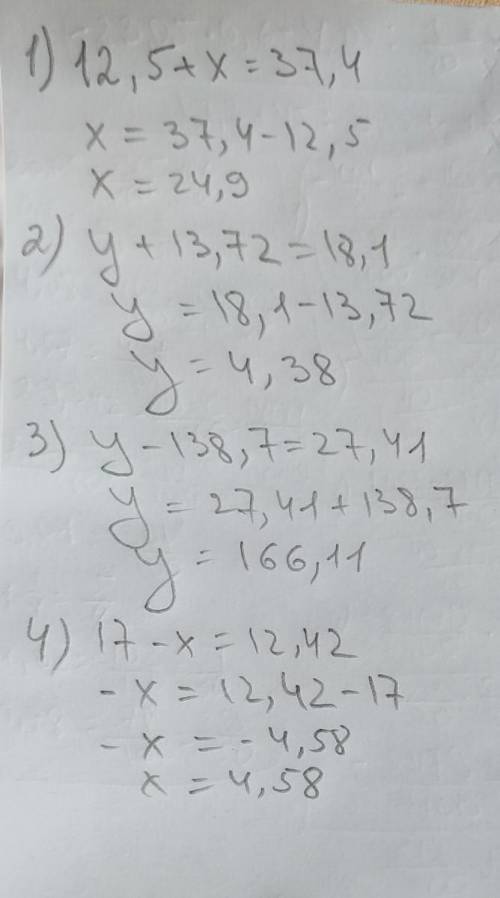 1) 12,5+x=37,4
x = 37,4-12,5
x = 24,9
2) y + 13,72=18,1
y = 18,1-13,72
y = 4,38
3) y-138,7=27,41
y = 27,41+138,7
y = 166,11
4) 17-x=12,42
-x=12,42-17
-x=-4,58
x=4,58